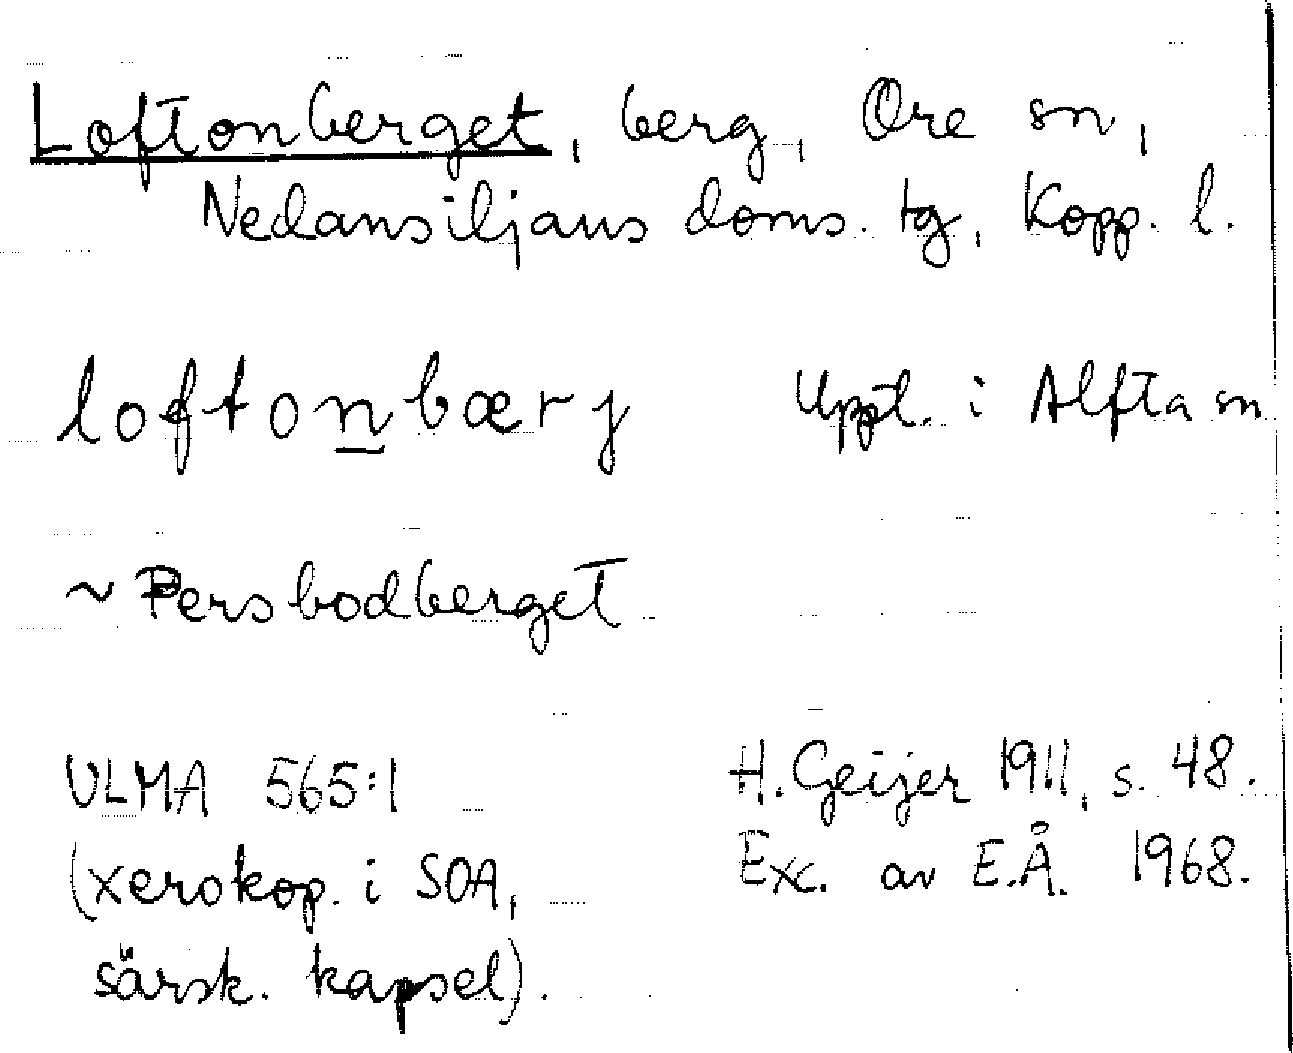 Loftonberget, berg, Ore sn,
Nedansiljans doms. tg, Kopp. l.
loftonbærj Uppt. i Alfta sn
~ Persbodberget
ULMA 565:1 H. Geijer 1911, s. 48.
(xerokop. i SOA, Exc. av E.Å. 1968.
särsk. kapsel).